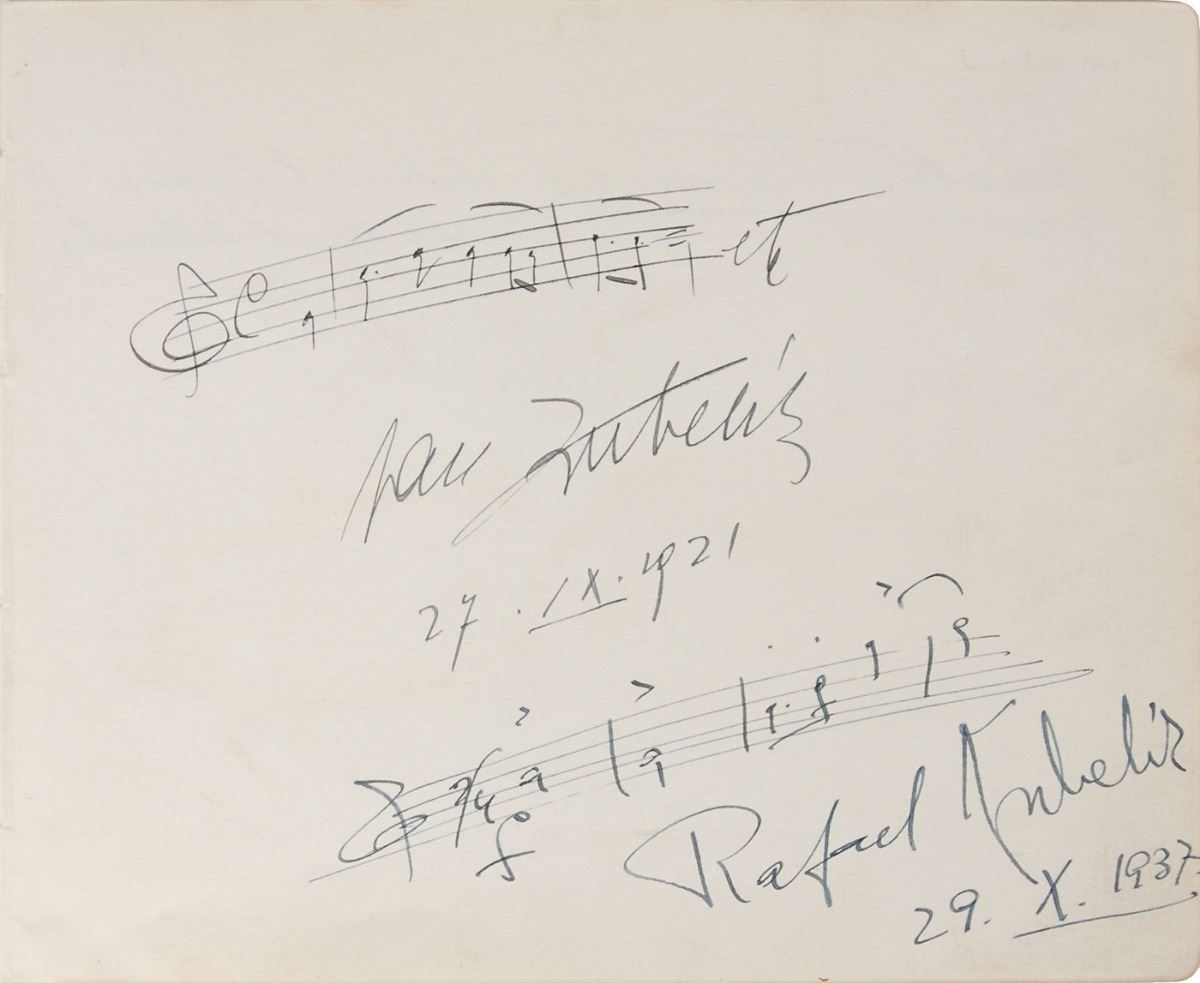 etc
Jan Kubelík
27. IX. 1921
2/4
f
Rafael Kubelík
29. X. 1937.